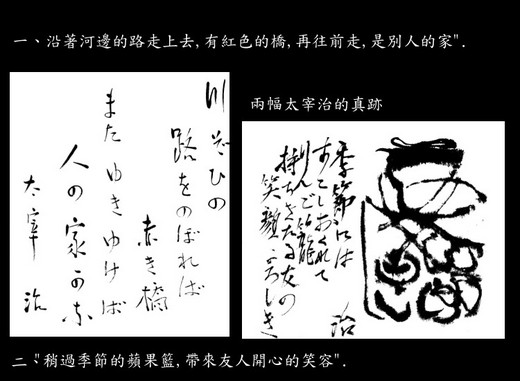 一、沿著河邊的路走上去,有紅色的橋,再往前走,是別人的家".
兩幅太宰治的真跡
川ぞひの
路をのぼれば
赤き橋
またゆきゆけば
人の家かな
太宰治
季節には
すこしおくれて
りんご籠
持ちきたる友の
笑顔よろしき
治
二、"稍過季節的蘋果籃,帶來友人開心的笑容".